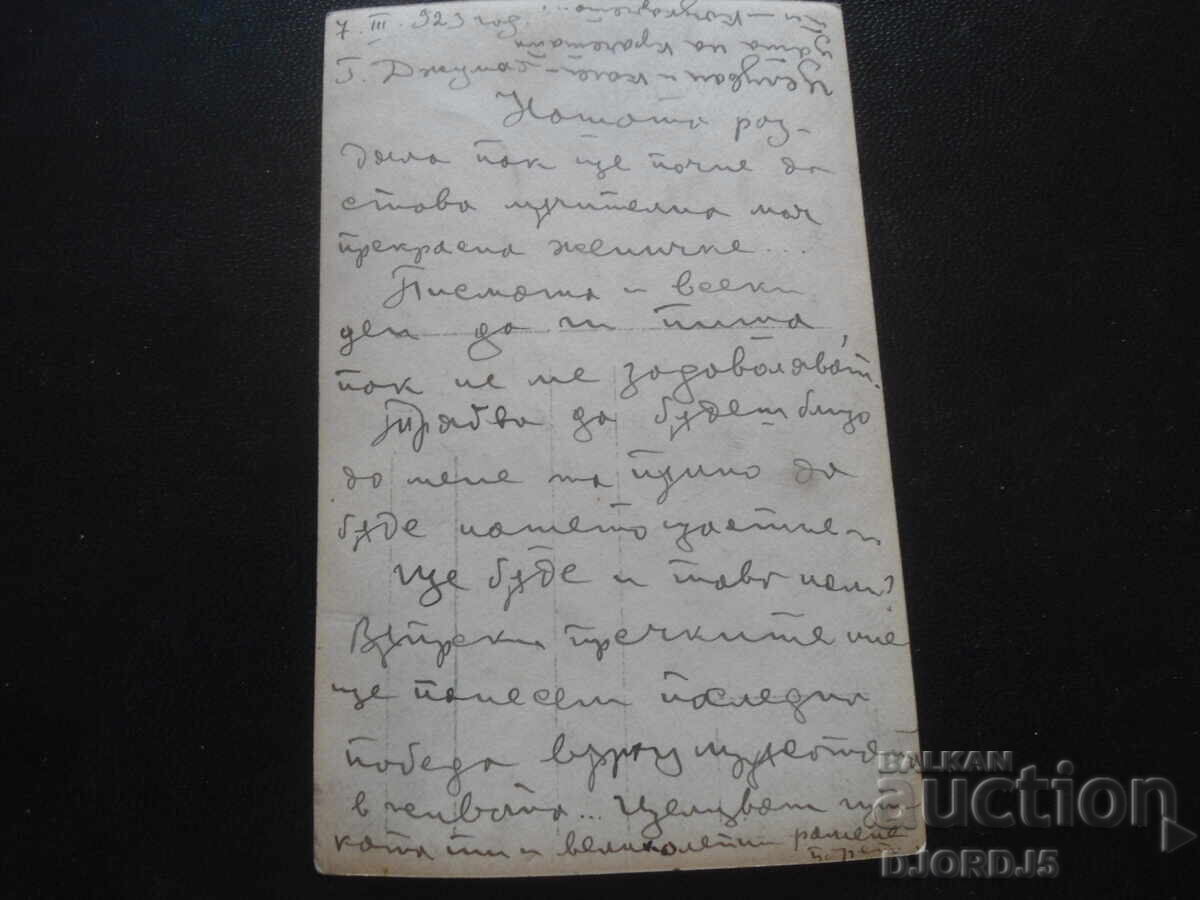 7. III. 923 год.
Г. Джумая
Нашата раз-
дяла пак ще почне да
става мѫчителна моя
прекрасна женичке...
Писмата и всеки
ден да ти пиша,
пак не ме задоволяват.
Трябва да бѫдеш близо
до мене та пълно да
бѫде нашето щастие
Ще бѫде и това нали?
Въпреки пречките ние
ще понесем последна
победа върху
в живота... Целувам
ти и великолепни рамене
Целувам и
ти
BALKAN
auction
DJORDJ5